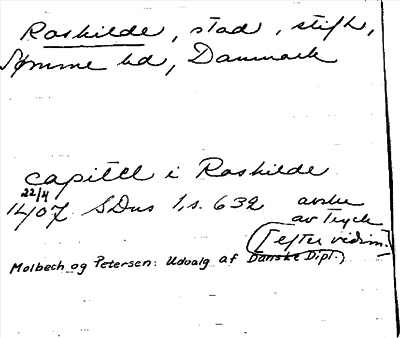 Roskilde, stad, stift,
Sømme hd, Danmark
capitel i Roskilde
22/4
1407 SDns 1, s. 632 avskr
av tryck
[efter vidim.]
Molbech og Petersen: Udvalg af Danske Dipl.)